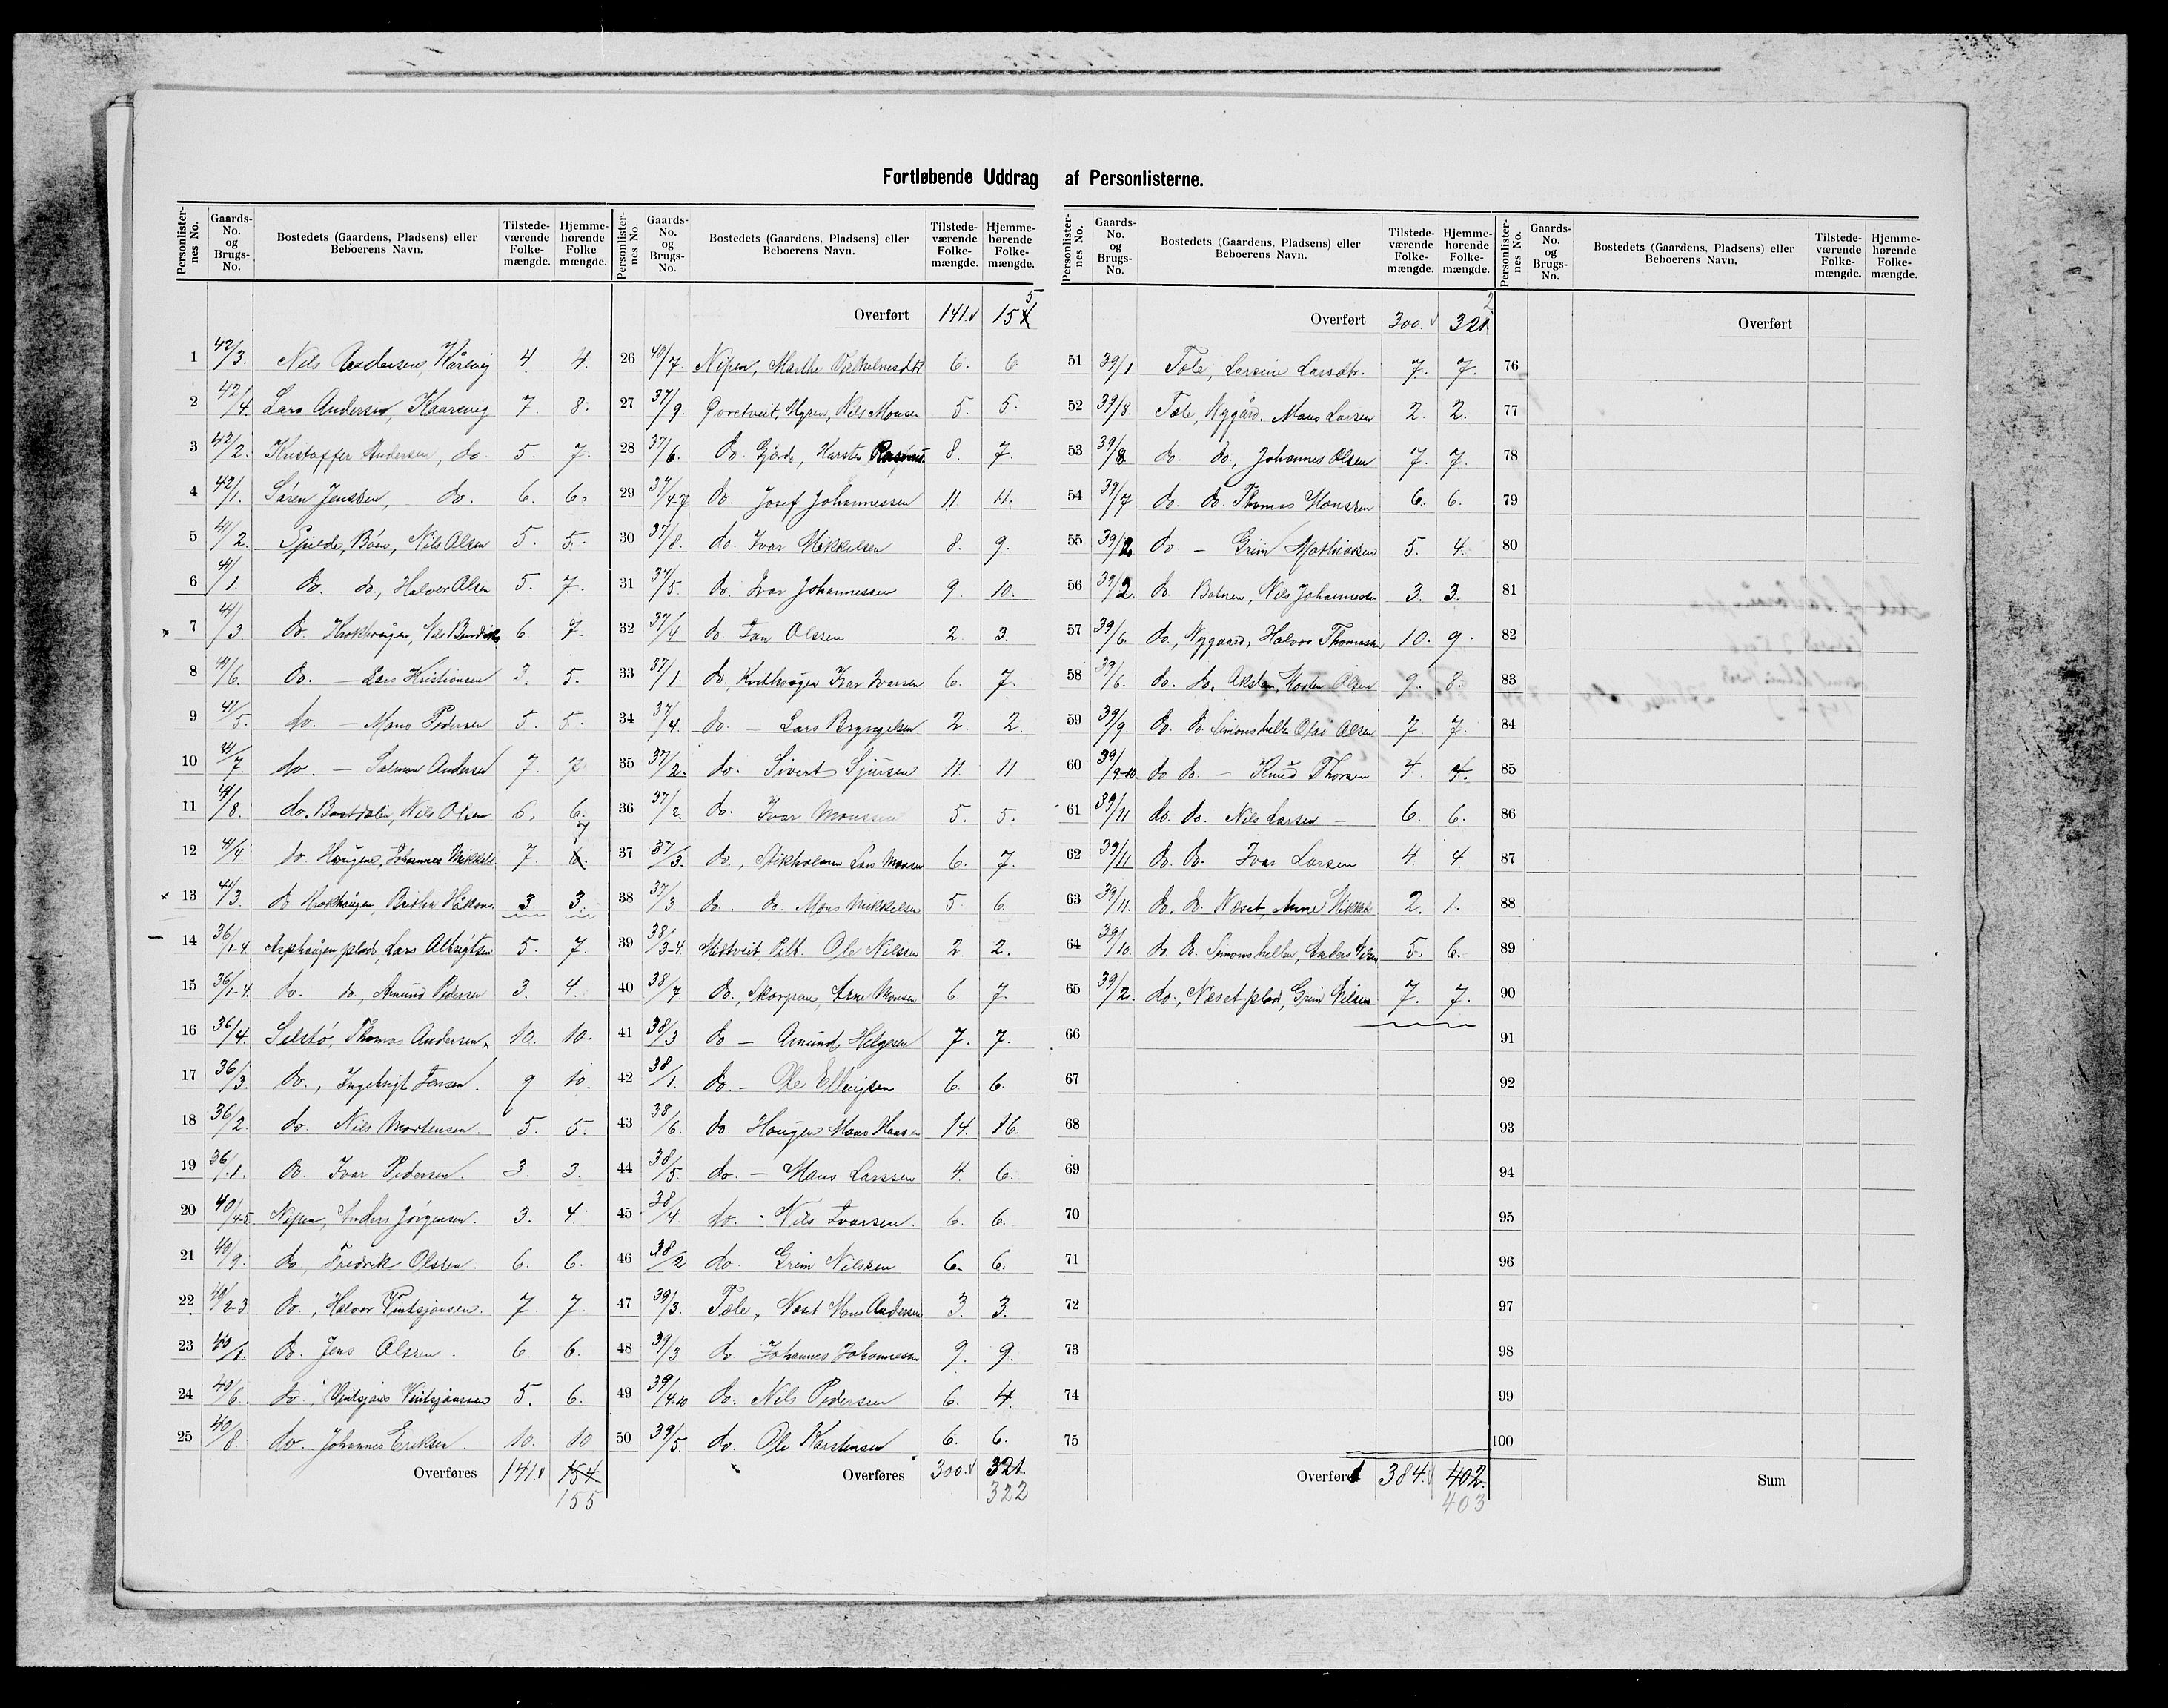 Fortløbende Uddrag af Personlisterne.
Personlister-nes No. | Gaards-No. og Brugs-No. | Bostedets (Gaardens, Pladsens) eller Beboerens Navn. | Tilstede-værende Folke-mængde. | Hjemme-hørende Folke mængde.
1 42/3. Nils Andersen, Kårevig 4. 4.
2 42/4. Lars Andersen, Kaarevig 7. 8.
3 42/2. Kristoffer Andersen, do 5. 7.
4 42/1. Søren Jenssen, do. 6. 6.
5 41/2. Spilde, Bøen, Nils Olsen 5. 5.
6 41/1. do. do, Halvor Olsen 5. 7.
7 41/3 do. Krokhaugen, Nils Bendiks 6. 7.
8 41/6. do. – Lars Kristiansen 3. 5.
9 41/5. do. – Mons Pedersen 5. 5.
10 41/7. do. – Salmon Andersen 7. 7
11 41/8. do. Bastdalen, Nils Olsen 6. 6.
12 41/4. do. Haugene, Johannes Mikkels 7. 7
13 41/3. do Krokhaugen, Brithe Håkons. 3. 3.
14 36/1-4. Asphaugen plads, Lars Albrigtsen 5. 7.
15 36/1-4. do. do, Amund Pedersen 3. 4.
16 36/4. Selstø, Thomas Andersen 10. 10.
17 36/3. do., Ingebrigt Jensen. 9 10.
18 36/2. do. Nils Mortensen. 5. 5.
19 36/1. do. Ivar Pedersen. 3. 3.
20 40/4-5. Nipen, Anders Jørgensen. 3. 4.
21 40/9. do, Fredrik Olssen. 6. 6.
22 40/2-3 do., Halvor Vintsjansen. 7. 7
23 40/1. do. Jens Olssen. 6. 6.
24 40/6. do. Vintsjans Vintsjanssen 5. 6.
25 40/8. do. Johannes Eriksen. 10. 10
Overføres 141. 154 155
Personlister-nes No. | Gaards-No. og Brugs-No. | Bostedets (Gaardens, Pladsens) eller Beboerens Navn. | Tilstede-værende Folke-mængde. | Hjemme-hørende Folke-mængde.
Overført 141. 155
26 40/7. Nipen, Marthe Vilhelmsdtr 6. 6.
27 37/9. Øvretveit, Myren, Nils Monsen 5. 5.
28 37/6. do. Gjærde, Karsten Rasmus. 8. 7.
29 37/4-7 do. Josef Johannessen 11 11.
30 37/8. do. Ivar Mikkelsen 8. 9.
31 37/5. do. Ivar Johannessen 9. 10.
32 37/4. do Jan Olssen 2. 3.
33 37/1. do, Kvithaugen Ivar Ivarsen 6. 7.
34 37/4. do – Lars Bryngelsen 2. 2.
35 37/2. do. Sivert Sjursen 11. 11
36 37/2. do. Ivar Monssen 5. 5.
37 37/3. do., Stikholmen Lars Monsen 6. 7.
38 37/3. do. do. Mons Mikkelsen 5 6
39 38/3-4 Midtveit, Ole Nilssen 2 2.
40 38/7. do., Skorpane, Arne Monsen 6. 7.
41 38/3 do – Amund Helgesen 7. 7.
42 38/1. do. – Ole Ellingsen 6. 6.
43 38/6. do. Haugen Mons Hansen 14. 16.
44 38/5. do. – Hans Larssen 4. 6.
45 38/4. do. – Nils Ivarsen. 6. 6.
46 38/2 do. Grim Nilssen 6. 6.
47 39/3. Tøle, Næset Mons Andersen 3. 3.
48 39/3 do Johannes Johannessen 9. 9.
49 39/4-10 do. Nils Pedersen 6. 4.
50 39/5. do. Ole Karstensen 6. 6.
Overføres 300. 321. 322
Personlister-nes No. | Gaards-No. og Brugs-No. | Bostedets (Gaardens, Pladsens) eller Beboerens Navn. | Tilstede-værende Folke-mængde. | Hjemme-hørende Folke-mængde.
Overført 300. 321. 2
51 39/1 Tøle, Larsine Larsdtr. 7. 7.
52 39/8. Tøle, Nygård. Mons Larsen 2. 2.
53 39/8 do. do., Johannes Olsen 7. 7.
54 39/7 do. do. Thomas Hanssen 6. 6.
55 39/2 do. – Grim Mathiassen 5. 4.
56 39/2. do. Botnen, Nils Johannessen 3. 3.
57 39/6. do, Nygaard, Halvor Thomassen 10. 9.
58 39/6. do. do, Morten Olsen 9. 8.
59 39/9. do. do. Simonshelle Olai Olsen 7. 7.
60 39/9-10. do do. – Knud Thorsen 4. 4.
61 39/11 do. do. Nils Larsen – 6. 6.
62 39/11 do. do. Ivar Larsen 4. 4.
63 39/11. do. do. Næset, Anne Mikkels 2. 1.
64 39/10. do do. Simonshellen, Anders 5. 6.
65 39/2. do., Næset plads, Grim Nilsen 7. 7.
66
67
68
69
70
71
72
73
74
75
Overføres 384. 402. 403
Personlister-nes No. | Gaards-No. og Brugs-No. | Bostedets (Gaardens, Pladsens) eller Beboerens Navn. | Tilstede-værende Folke-mængde. | Hjemme-hørende Folke-mængde.
Overført
76
77
78
79
80
81
82
83
84
85
86
87
88
89
90
91
92
93
94
95
96
97
98
99
100
Sum